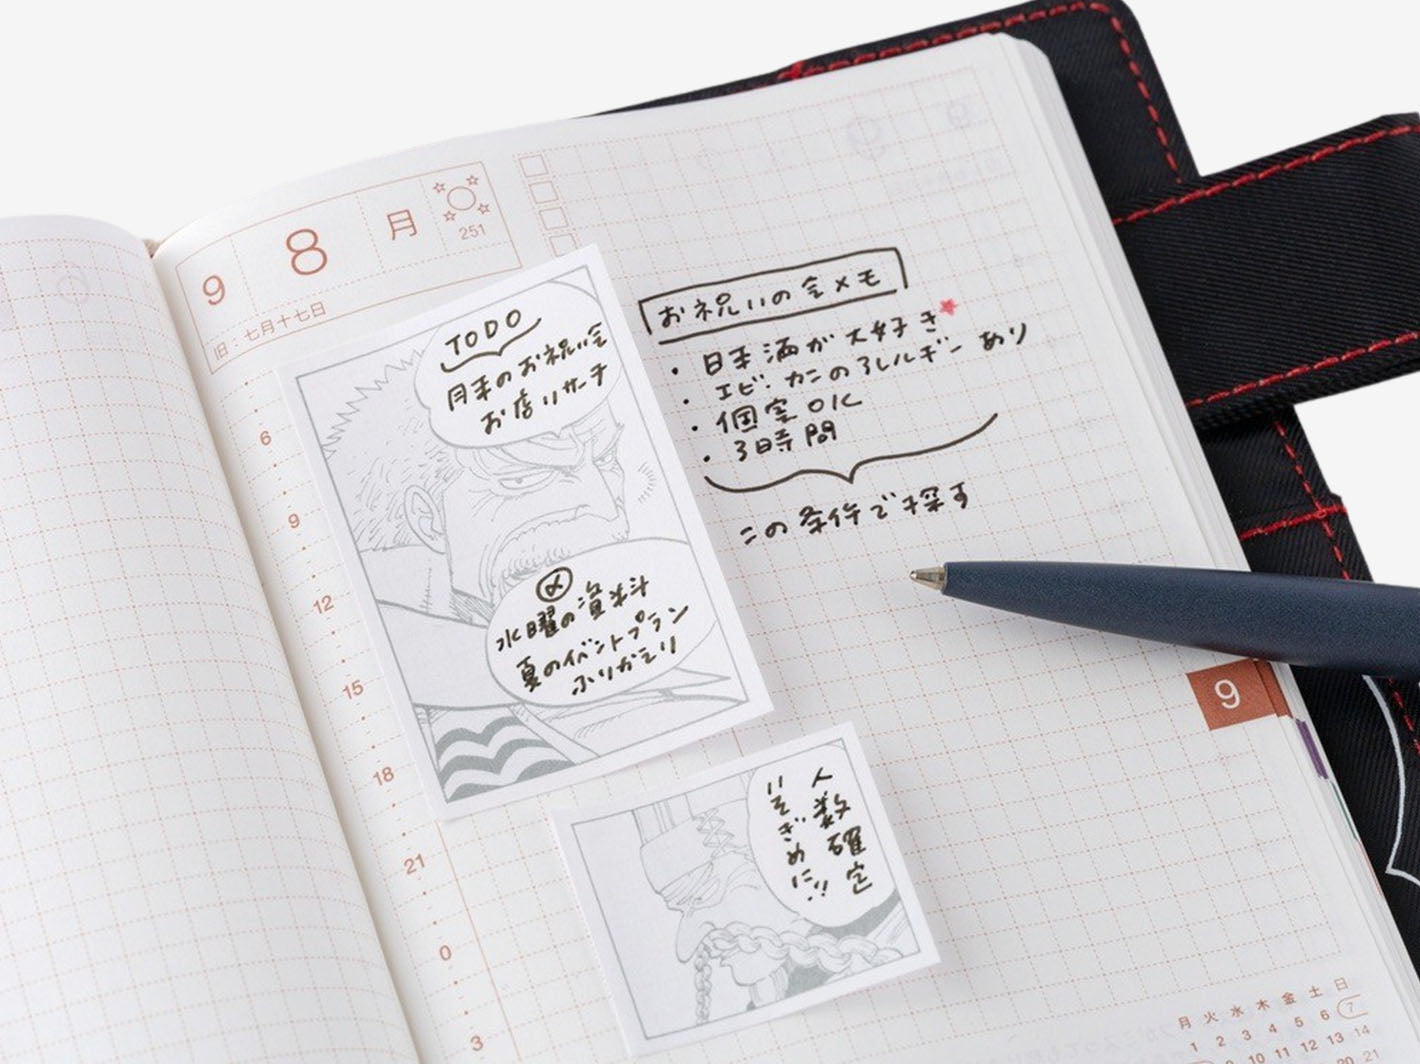 9 8 月
251
旧：七月十七日
6
9
12
15
18
21
0
3
TODO
月末のお祝い会
お店リサーチ
〆
水曜の資料
夏のイベントプラン
ふりかえり
人数確定
いそぎめに!!
お祝いの会メモ
・日本酒が大好き
・エビ・カニのアレルギーあり
・個室OK
・3時間
この条件で探す
9
月 火 水 木 金 土 日
1 2 3 4 5 6 7
9 10 11 12 13 14
20 21